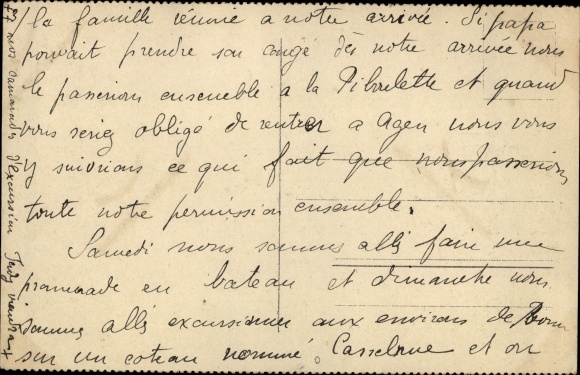 la famille réunie a notre arrivée. Si papa
pouvait prendre son congé dès notre arrivée nous
le passerions ensemble a la Piboulette et quand
vous seriez obligé de rentrer a Agen nous vous
y suivrions ce qui fait que nous passerions
toute notre permission ensemble.
Samedi nous sommes allés faire une
promenade en bateau et dimanche nous
sommes allés excursionner aux environs de
sur un coteau nommé. et on
mes camarades d'excursion